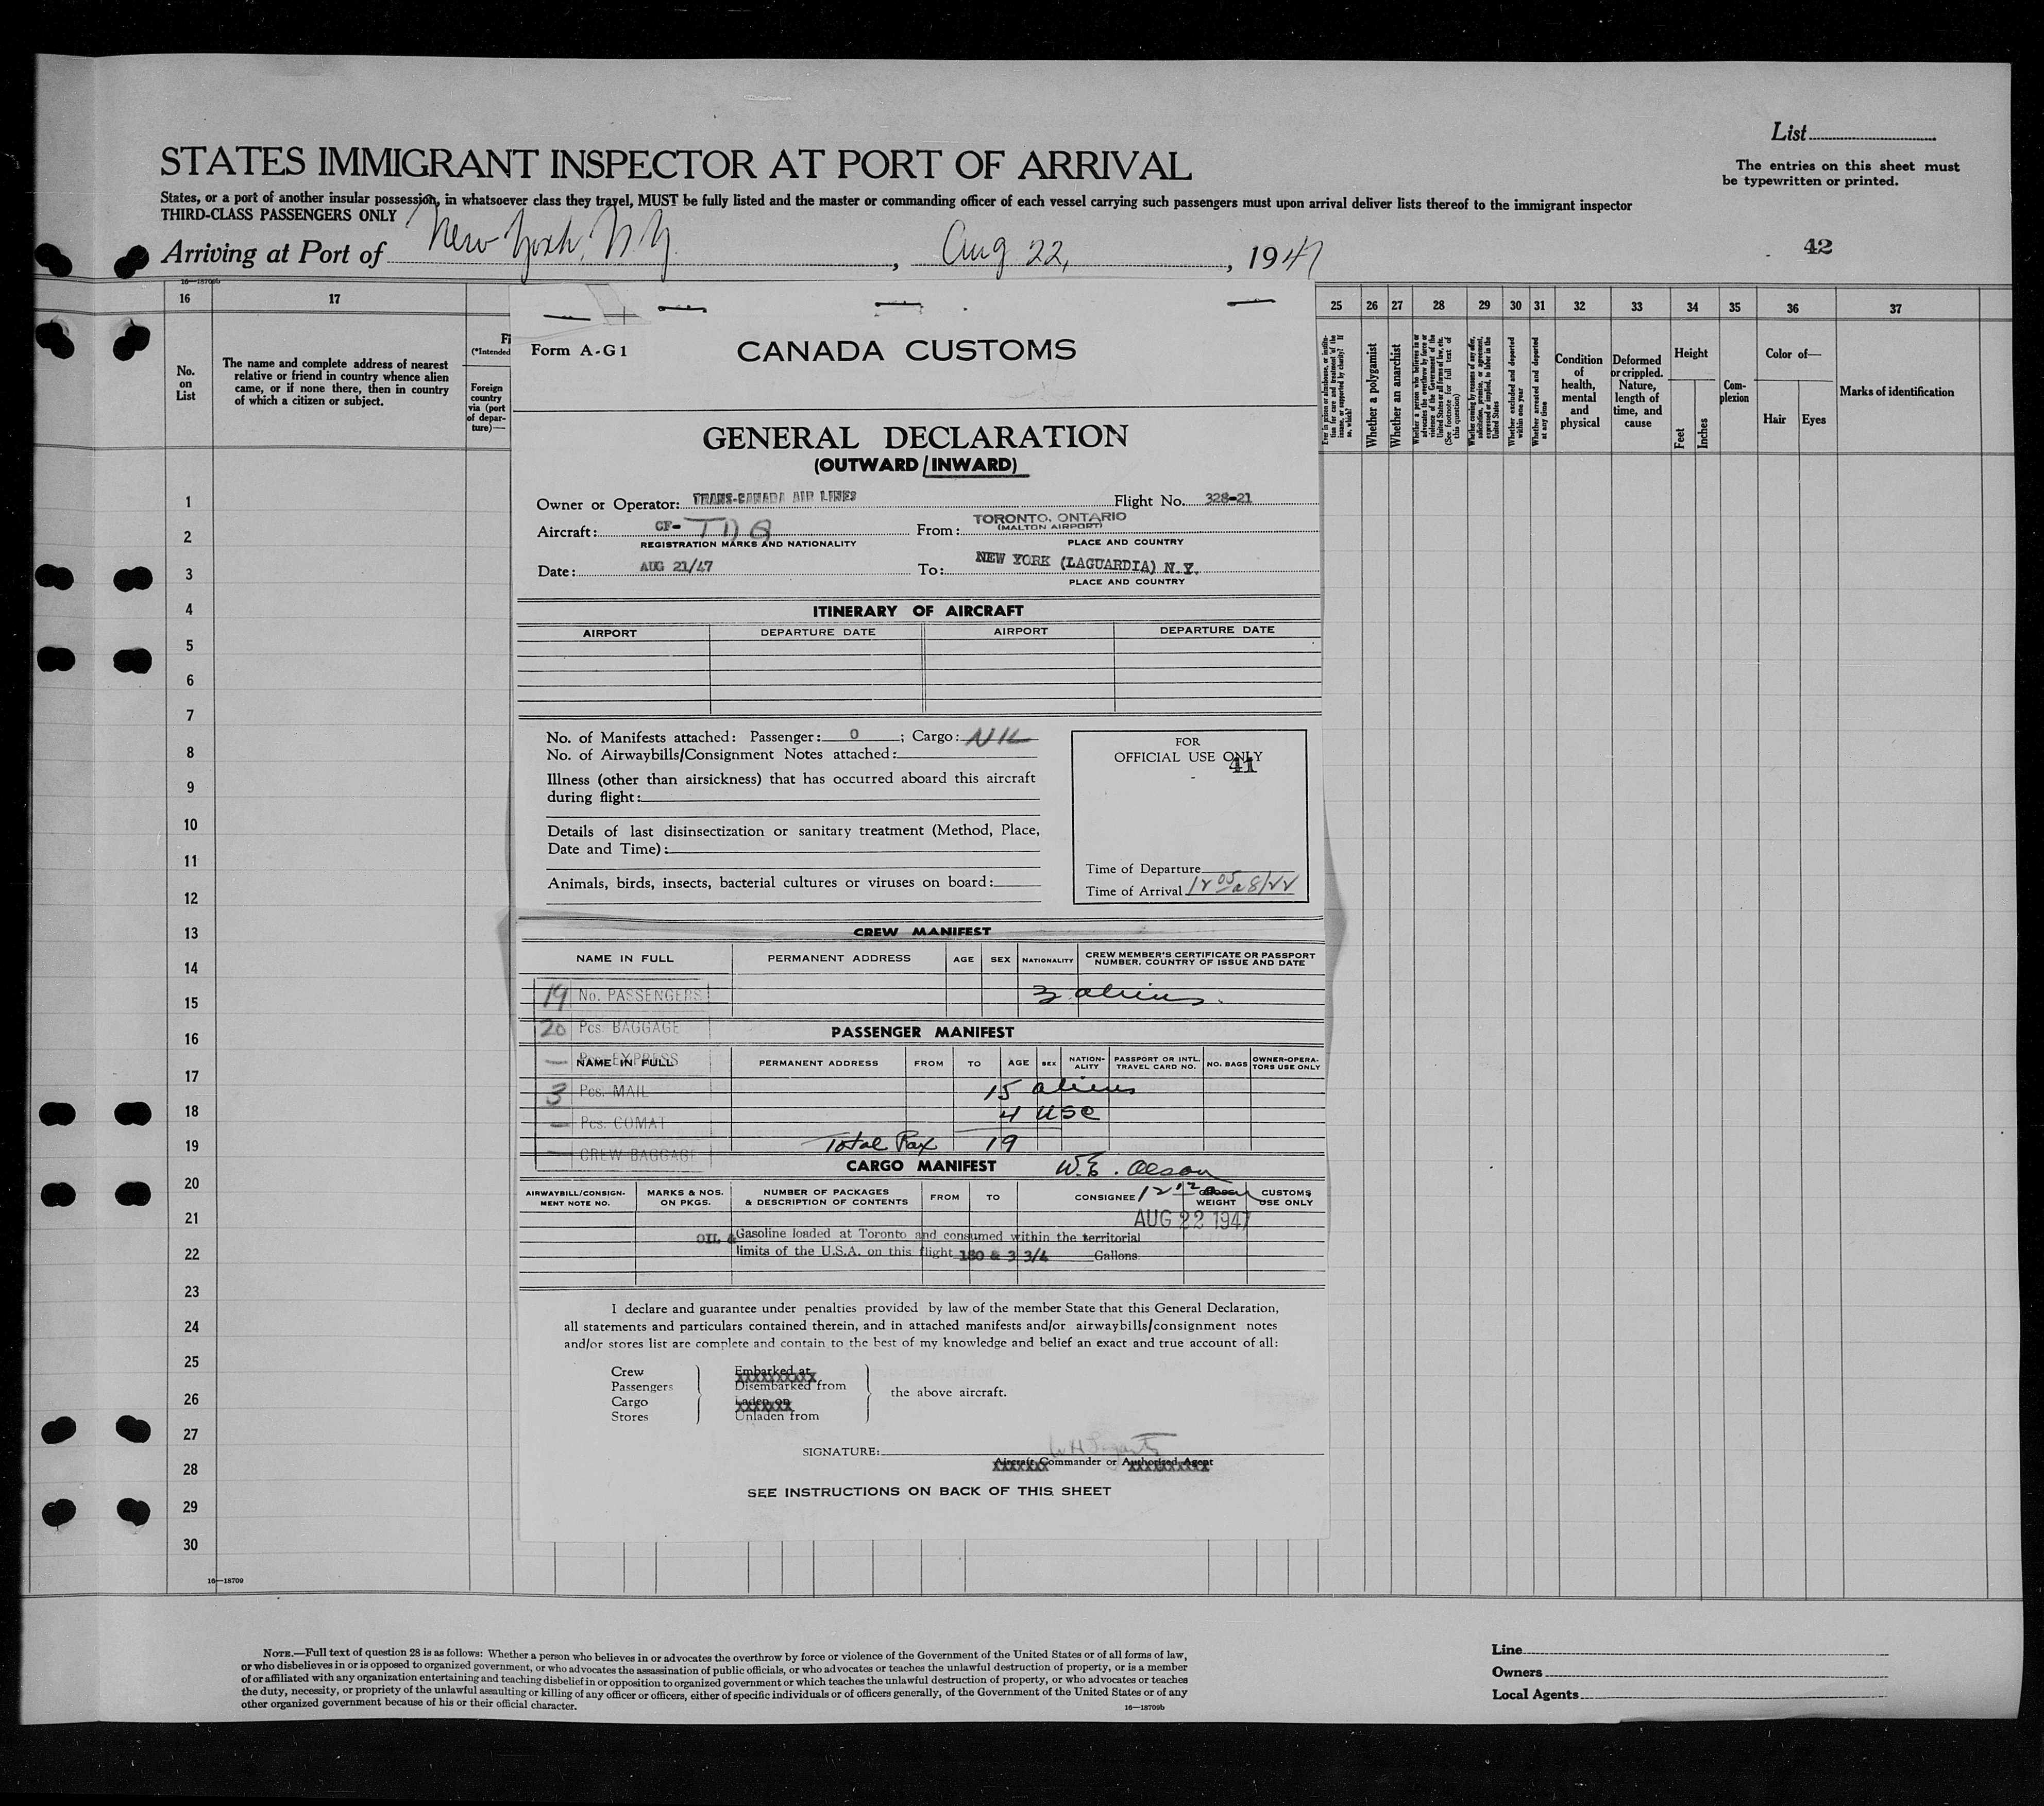 List
STATES IMMIGRANT INSPECTOR AT PORT OF ARRIVAL
The entries on this sheet must
be typewritten or printed.
States, or a port of another insular possession, in whatsoever class they travel, MUST be fully listed and the master or commanding officer of each vessel carrying such passengers must upon arrival deliver lists thereof to the immigrant inspector
THIRD-CLASS PASSENGERS ONLY
Arriving at Port of New York, N.Y. , Aug 22, , 1947
42
16—18709b
16 17 25 26 27 28 29 30 31 32 33 34 35 36 37
No.
on
List
The name and complete address of nearest
relative or friend in country whence alien
came, or if none there, then in country
of which a citizen or subject.
(*Intended
Foreign
country
via (port
of depar-
ture)—
Whether a polygamist
Whether an anarchist
Whether excluded and deported
within one year
Whether arrested and deported
at any time
Condition
of
health,
mental
and
physical
Deformed
or crippled.
Nature,
length of
time, and
cause
Height
Feet
Inches
Com-
plexion
Color of—
Hair
Eyes
Marks of identification
1
2
3
4
5
6
7
8
9
10
11
12
13
14
15
16
17
18
19
20
21
22
23
24
25
26
27
28
29
30
16—18709
Form A-G1
CANADA CUSTOMS
GENERAL DECLARATION
(OUTWARD/INWARD)
Owner or Operator: TRANS-CANADA AIR LINES Flight No. 328-21
Aircraft: CF- From: TORONTO, ONTARIO
(MALTON AIRPORT)
REGISTRATION MARKS AND NATIONALITY PLACE AND COUNTRY
Date: AUG 21/47 To: NEW YORK (LAGUARDIA) N.Y.
PLACE AND COUNTRY
ITINERARY OF AIRCRAFT
AIRPORT DEPARTURE DATE AIRPORT DEPARTURE DATE
No. of Manifests attached: Passenger: 0 ; Cargo: NIL
No. of Airwaybills/Consignment Notes attached:
Illness (other than airsickness) that has occurred aboard this aircraft
during flight:
Details of last disinsectization or sanitary treatment (Method, Place,
Date and Time):
Animals, birds, insects, bacterial cultures or viruses on board:
FOR
OFFICIAL USE ONLY
41
Time of Departure
Time of Arrival 12 05 a 8/22
CREW MANIFEST
NAME IN FULL PERMANENT ADDRESS AGE SEX NATIONALITY CREW MEMBER'S CERTIFICATE OR PASSPORT
NUMBER, COUNTRY OF ISSUE AND DATE
19 No. PASSENGERS 3 aliens.
20 Pcs. BAGGAGE
PASSENGER MANIFEST
— Pcs. EXPRESS
NAME IN FULL PERMANENT ADDRESS FROM TO AGE SEX NATION-
ALITY PASSPORT OR INTL.
TRAVEL CARD NO. NO. BAGS OWNER-OPERA-
TORS USE ONLY
3 Pcs. MAIL 15 aliens
— Pcs. COMAT 4 USC
Total Pax 19
— CREW BAGGAGE
CARGO MANIFEST W.E. Olson
AIRWAYBILL/CONSIGN-
MENT NOTE NO. MARKS & NOS.
ON PKGS. NUMBER OF PACKAGES
& DESCRIPTION OF CONTENTS FROM TO CONSIGNEE 12 12 GROSS
WEIGHT CUSTOMS
USE ONLY
AUG 22 1947
OIL & Gasoline loaded at Toronto and consumed within the territorial
limits of the U.S.A. on this flight 180 & 3 3/4 Gallons
I declare and guarantee under penalties provided by law of the member State that this General Declaration,
all statements and particulars contained therein, and in attached manifests and/or airwaybills/consignment notes
and/or stores list are complete and contain to the best of my knowledge and belief an exact and true account of all:
Crew Embarked at
Passengers Disembarked from
the above aircraft.
Cargo Laden on
Stores Unladen from
SIGNATURE:
Aircraft Commander or Authorized Agent
SEE INSTRUCTIONS ON BACK OF THIS SHEET
NOTE.—Full text of question 28 is as follows: Whether a person who believes in or advocates the overthrow by force or violence of the Government of the United States or of all forms of law,
or who disbelieves in or is opposed to organized government, or who advocates the assassination of public officials, or who advocates or teaches the unlawful destruction of property, or is a member
of or affiliated with any organization entertaining and teaching disbelief in or opposition to organized government or which teaches the unlawful destruction of property, or who advocates or teaches
the duty, necessity, or propriety of the unlawful assaulting or killing of any officer or officers, either of specific individuals or of officers generally, of the Government of the United States or of any
other organized government because of his or their official character.
16—18709b
Line
Owners
Local Agents